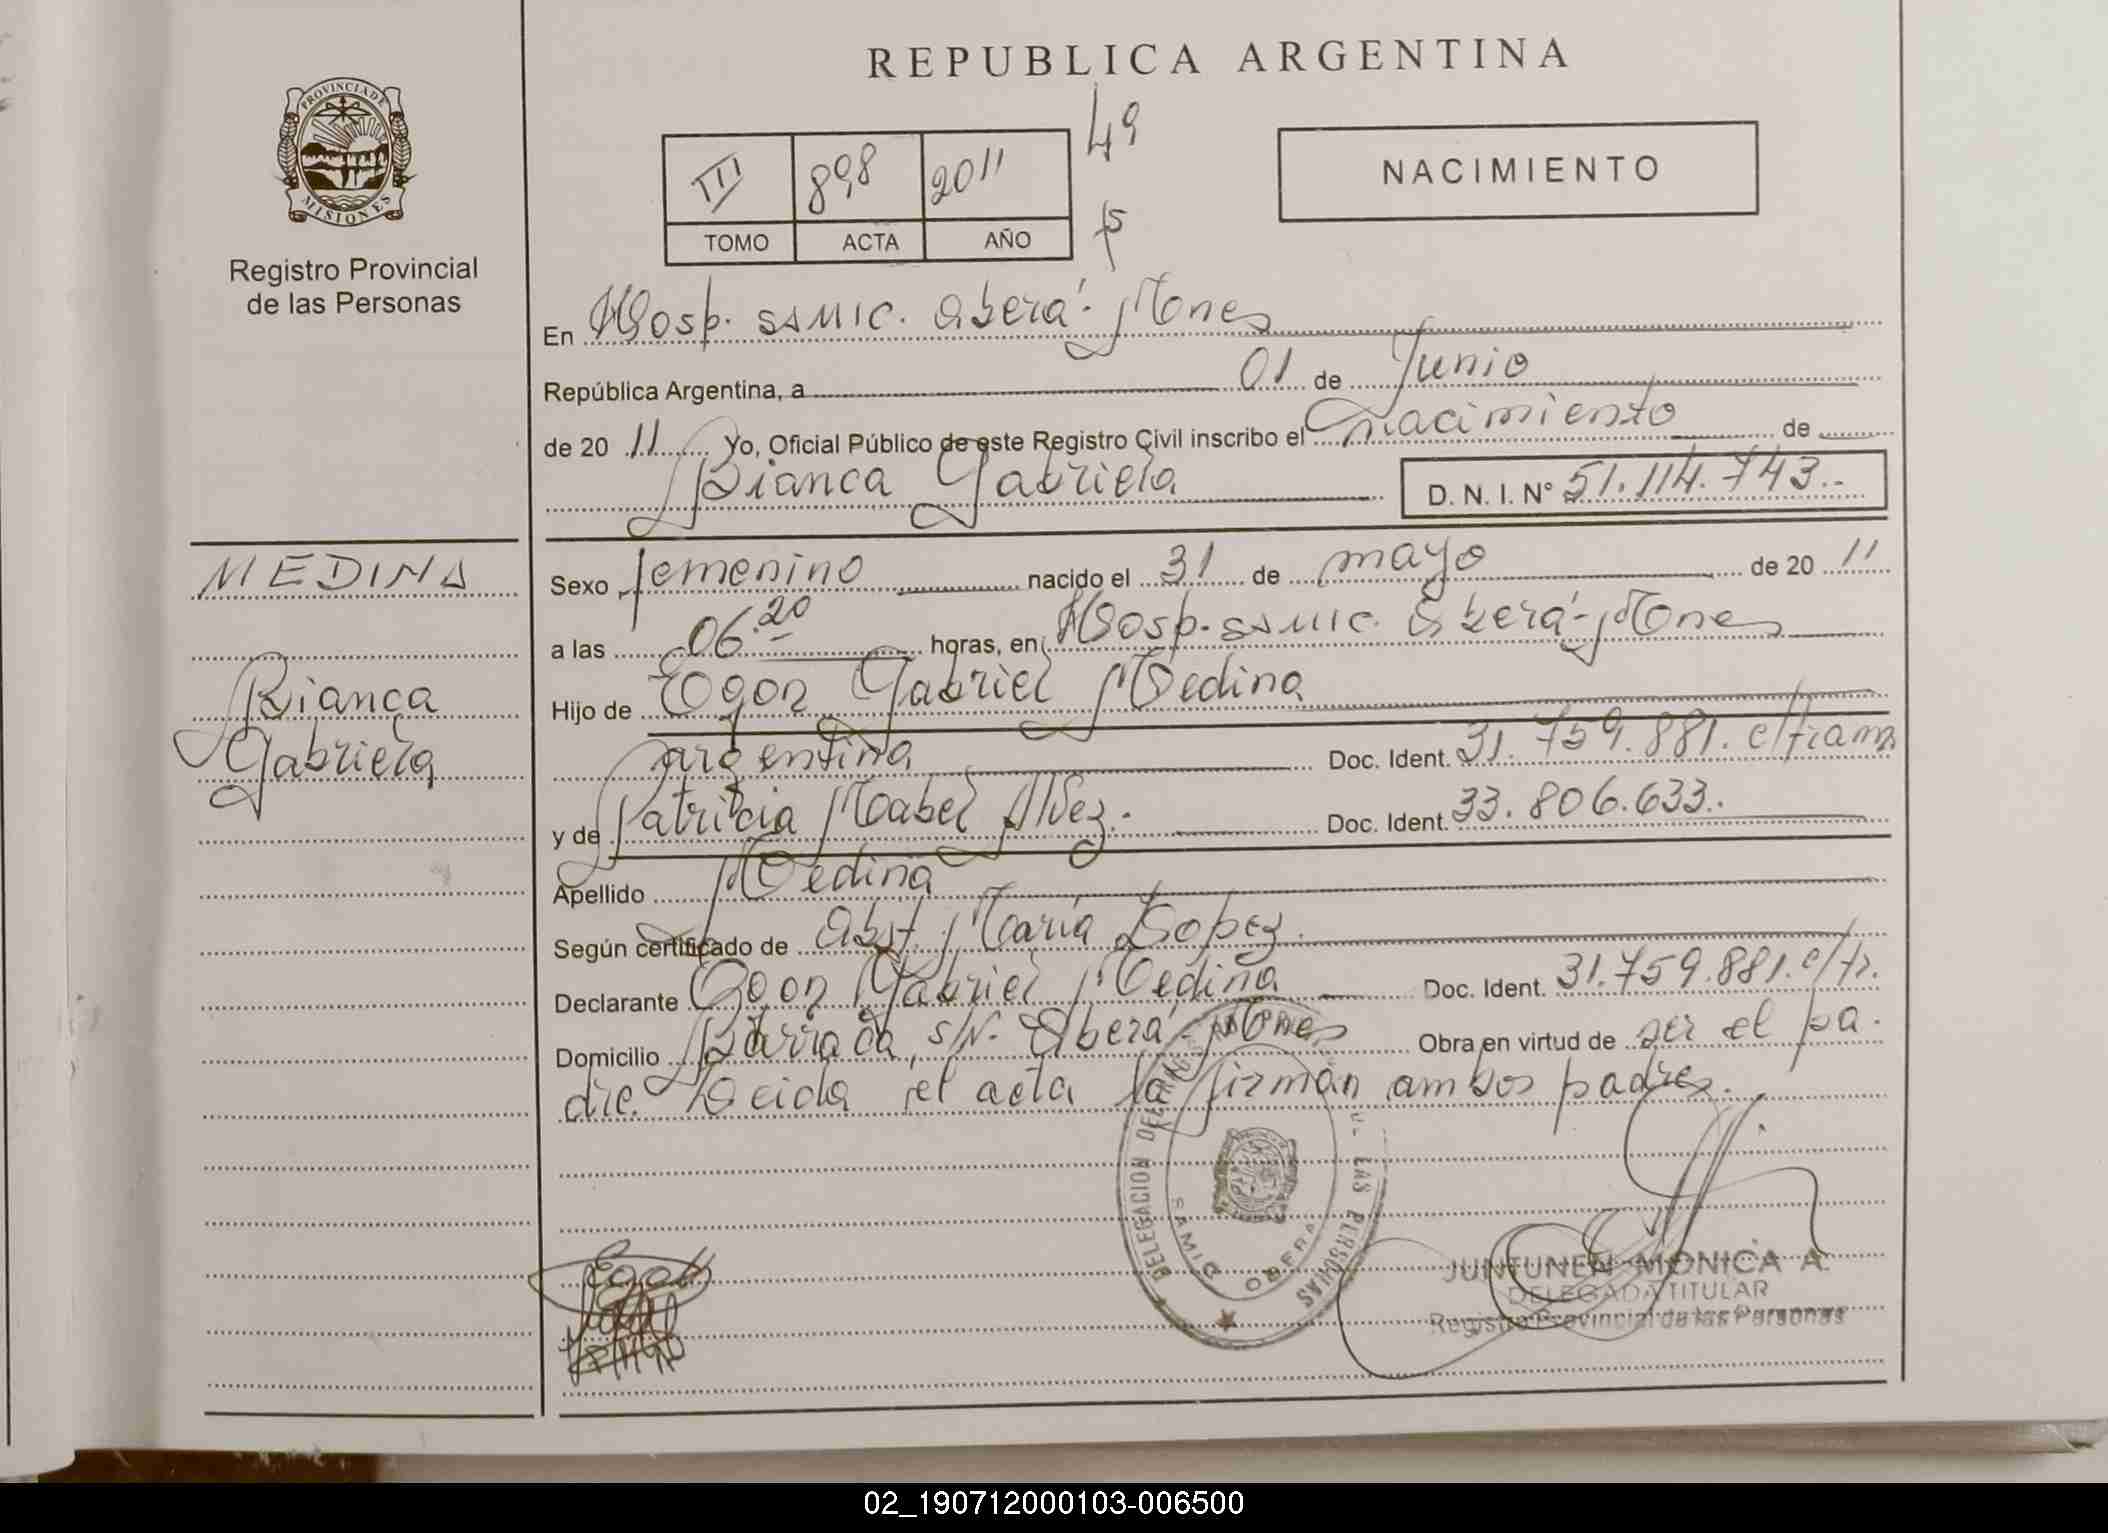 REPUBLICA ARGENTINA
PROVINCIA DE
MISIONES
Registro Provincial
de las Personas
III 898 2011
TOMO ACTA AÑO
4º
NACIMIENTO
En Hosp. SAMIC. Oberá - Mnes
República Argentina, a 01 de Junio
de 2011 Yo, Oficial Público de este Registro Civil inscribo el Nacimiento de
Bianca Gabriela D. N. I. N° 51.114.743.-
MEDINA
Bianca
Gabriela
Sexo femenino nacido el 31 de mayo de 2011
a las 06.20 horas, en Hosp. SAMIC. Oberá - Mnes
Hijo de Egon Gabriel Medina
argentina Doc. Ident. 31.759.881. c/tram
y de Patricia Mabel Alvez. Doc. Ident. 33.806.633.
Apellido Medina
Según certificado de Obst. María Lopez.
Declarante Egon Gabriel Medina Doc. Ident. 31.759.881. c/tr.
Domicilio s/N. Oberá - Mnes Obra en virtud de ser el pa
dre. Leida el acta la firman ambos padres.
DELEGACION DE LAS PERSONAS
SAMIC OBERA
JUNTUNEN MONICA A.
DELEGADA TITULAR
Registro Provincial de las Personas
02_190712000103-006500